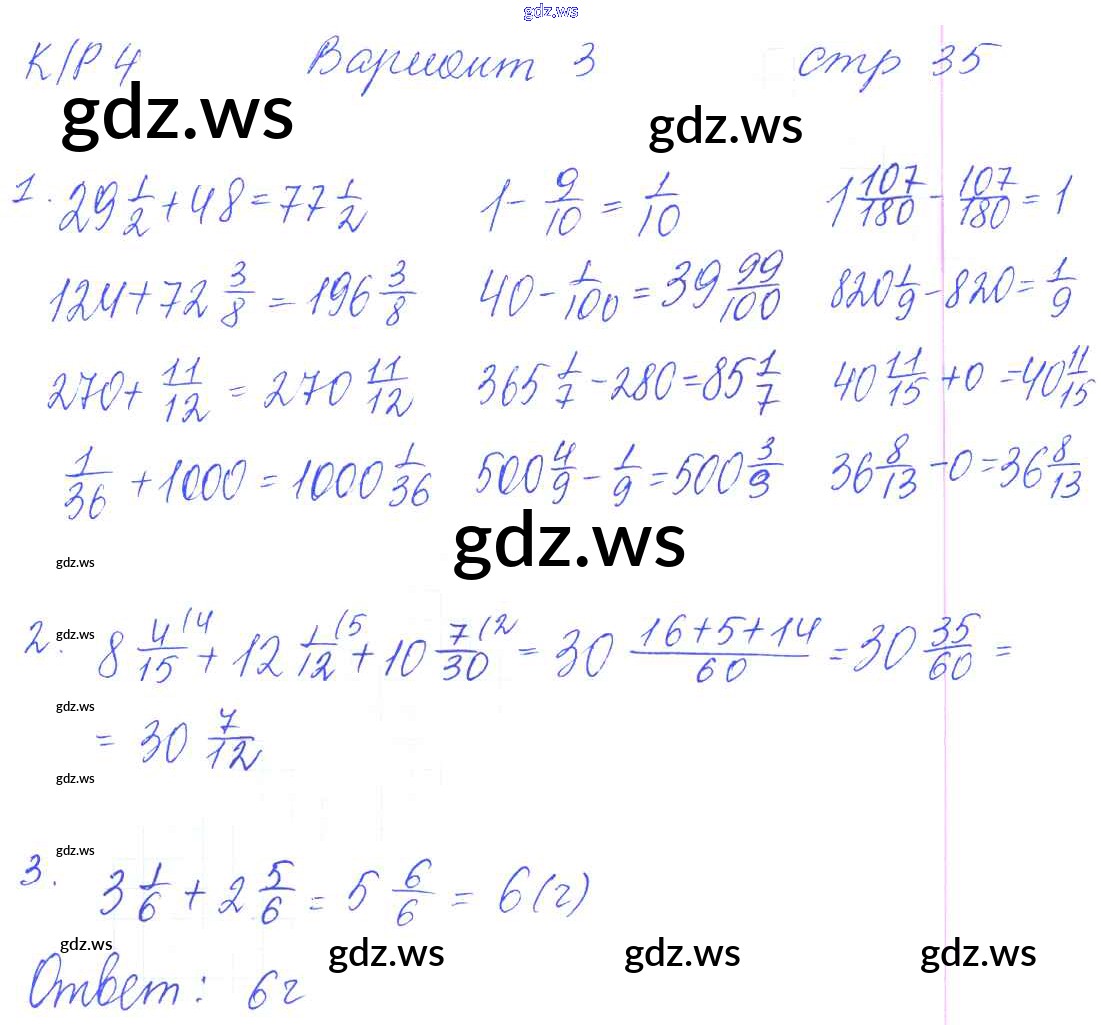 gdz.ws
К/Р 4 Вариант 3 стр 35
gdz.ws gdz.ws
1. 29 1/2 + 48 = 77 1/2 1 - 9/10 = 1/10 1 107/180 - 107/180 = 1
124 + 72 3/8 = 196 3/8 40 - 1/100 = 39 99/100 820 1/9 - 820 = 1/9
270 + 11/12 = 270 11/12 365 1/7 - 280 = 85 1/7 40 11/15 + 0 = 40 11/15
1/36 + 1000 = 1000 1/36 500 4/9 - 1/9 = 500 3/9 36 8/13 - 0 = 36 8/13
gdz.ws gdz.ws
2. 8 4/15 (4 + 12 1/12 (5 + 10 7/30 (2 = 30 (16+5+14)/60 = 30 35/60 =
gdz.ws
gdz.ws
= 30 7/12
gdz.ws
gdz.ws
3. 3 1/6 + 2 5/6 = 5 6/6 = 6 (г)
gdz.ws gdz.ws gdz.ws gdz.ws
Ответ: 6 г